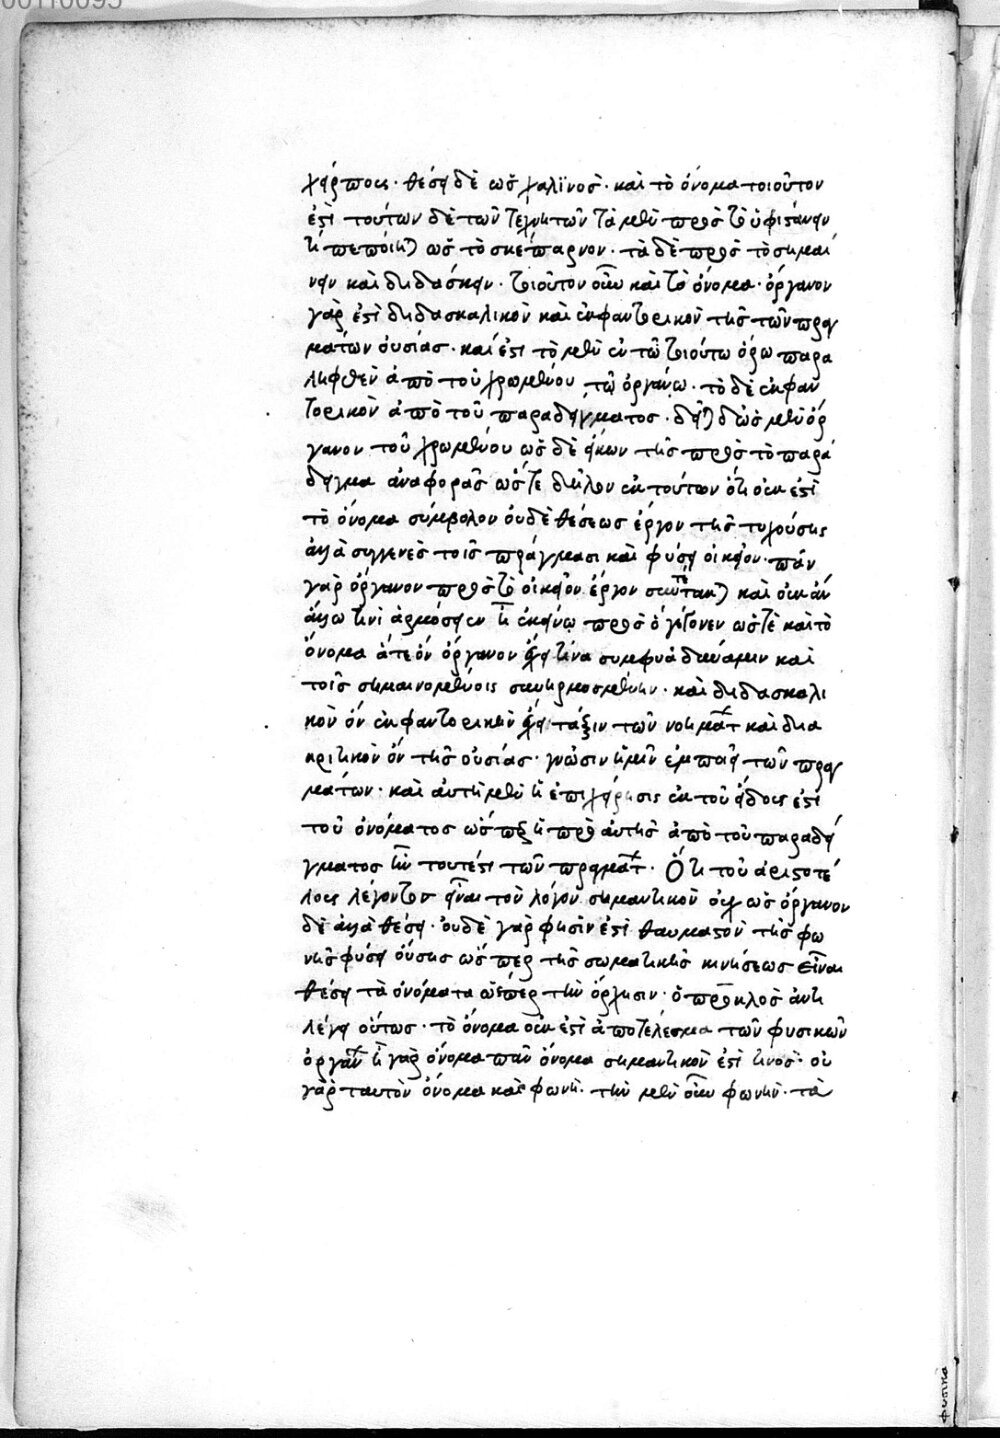 χείρ πους· θέσει δὲ ὡς χαλῖνος· καὶ τὸ ὄνομα τοιοῦτον
ἐστὶ τούτων δὲ τῶν τεχνητῶν τὰ μὲν πρὸς τὸ ὑφιστάνειν
τι πεποίηται ὡς τὸ σκέπαρνον· τὰ δὲ πρὸς τὸ σημαί
νειν καὶ διδάσκειν· τοιοῦτον οὖν καὶ τὸ ὄνομα· ὄργανον
γάρ ἐστι διδασκαλικὸν καὶ ἐκφαντορικὸν τῆς τῶν πραγ
μάτων οὐσίας· καί ἐστι τὸ μὲν ἐν τῷ τοιούτω ὅρω παρα
ληφθὲν ἀπὸ τοῦ χρωμένου τῷ ὀργάνῳ· τὸ δὲ ἐκφαν
τορικὸν ἀπὸ τοῦ παραδείγματος· δεῖται δ ὡς μὲν ὄρ
γανον τοῦ χρωμένου ὡς δὲ εἰκων τῆς πρὸς τὸ παρά
δειγμα ἀναφορᾶς ὡς τε δῆλον ἐκ τούτων ὅτι οὐκ ἐστὶ
τὸ ὄνομα σύμβολον οὐδὲ θέσεως ἔργον τῆς τυχούσης
ἀλλὰ συγγενὲς τοῖς πράγμασι καὶ φύσει οἰκεῖον· πᾶν
γὰρ ὄργανον πρὸς τὸ οἰκεῖον ἔργον συντέτακται καὶ οὐκ ἂν
ἄλλω τινὶ ἁρμόσειεν ἢ ἐκείνῳ πρὸς ὃ γέγονεν ὡς τὲ καὶ τὸ
ὄνομα ἅτε ὂν ὄργανον ἔχει τινα συμφυᾶ δύναμιν καὶ
τοῖς σημαινομένοις συνηρμοσμένην· καὶ διδασκαλι
κὸν ὂν ἐκφαντορικὴν ἔχει τάξιν τῶν νοημάτ καὶ δια
κριτικὸν ὂν τῆς οὐσίας· γνῶσιν ἡμῖν ἐμποιεῖ τῶν πραγ
μάτων· καὶ αὐτη μὲν ἡ ἐπιχείρησις ἐκ τοῦ εἴδους ἐστὶ
τοῦ ὀνόματος ὡσπερ ἡ πρὸ αὐτῆς ἀπὸ τοῦ παραδεί
γματος ἦν τουτέστι τῶν πραγμάτ. Ὅτι τοῦ ἀριστοτέ
λους λέγοντος εἶναι τὸν λόγον σημαντικὸν οὐχ ὡς ὄργανον
δὲ ἀλλὰ θέσει· οὐδὲ γὰρ φησὶν ἐστὶ θαυμαστὸν τῆς φω
νῆς φύσει οὔσης ὡς περ τῆς σωματικῆς κινήσεως εἶναι
θέσει τὰ ὀνόματα ὥσπερ τὴν ὄρχησιν· ὁ πρόκλος ἀντι
λέγει οὕτως· τὸ ὄνομα οὐκ ἐστὶ ἀποτέλεσμα τῶν φυσικῶν
ὀργάν ἢ γὰρ ὄνομα πᾶν ὄνομα σημαντικὸν ἐστὶ τινος· οὐ
γὰρ ταυτὸν ὄνομα καὶ φωνή· τὴν μὲν οὖν φωνὴν· τὰ
φυσικὰ